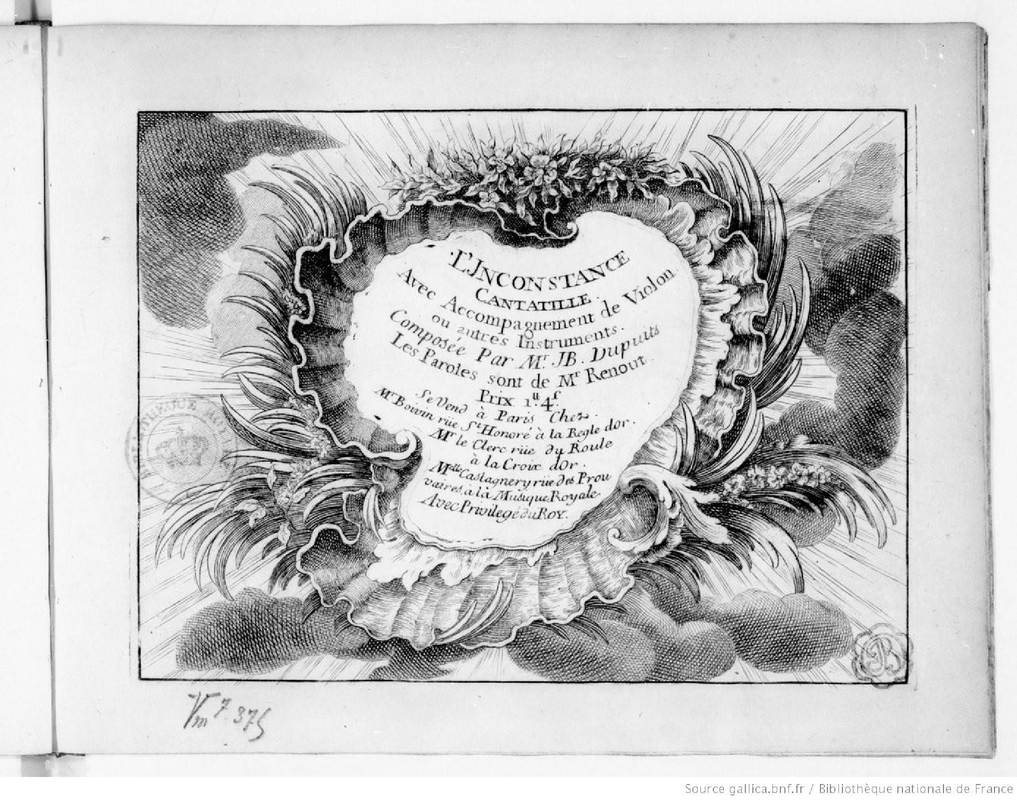 L'JNCONSTANCE
CANTATILLE.
Avec Accompagnement de Violon
ou autres Instruments.
Composée Par Mr. JB. Dupuits
Les Paroles sont de Mr Renout.
Prix 1.tt 4.s
Se Vend à Paris Chez.
Me Boivin rue St Honoré à la Regle dor.
Mr le Clerc rüe du Roule
à la Croix dOr.
Melle Castagnery rüe des Prou
vaires, à la Musique Royale.
Avec Privilege du ROY.
Vm 7. 375
Source gallica.bnf.fr / Bibliothèque nationale de France